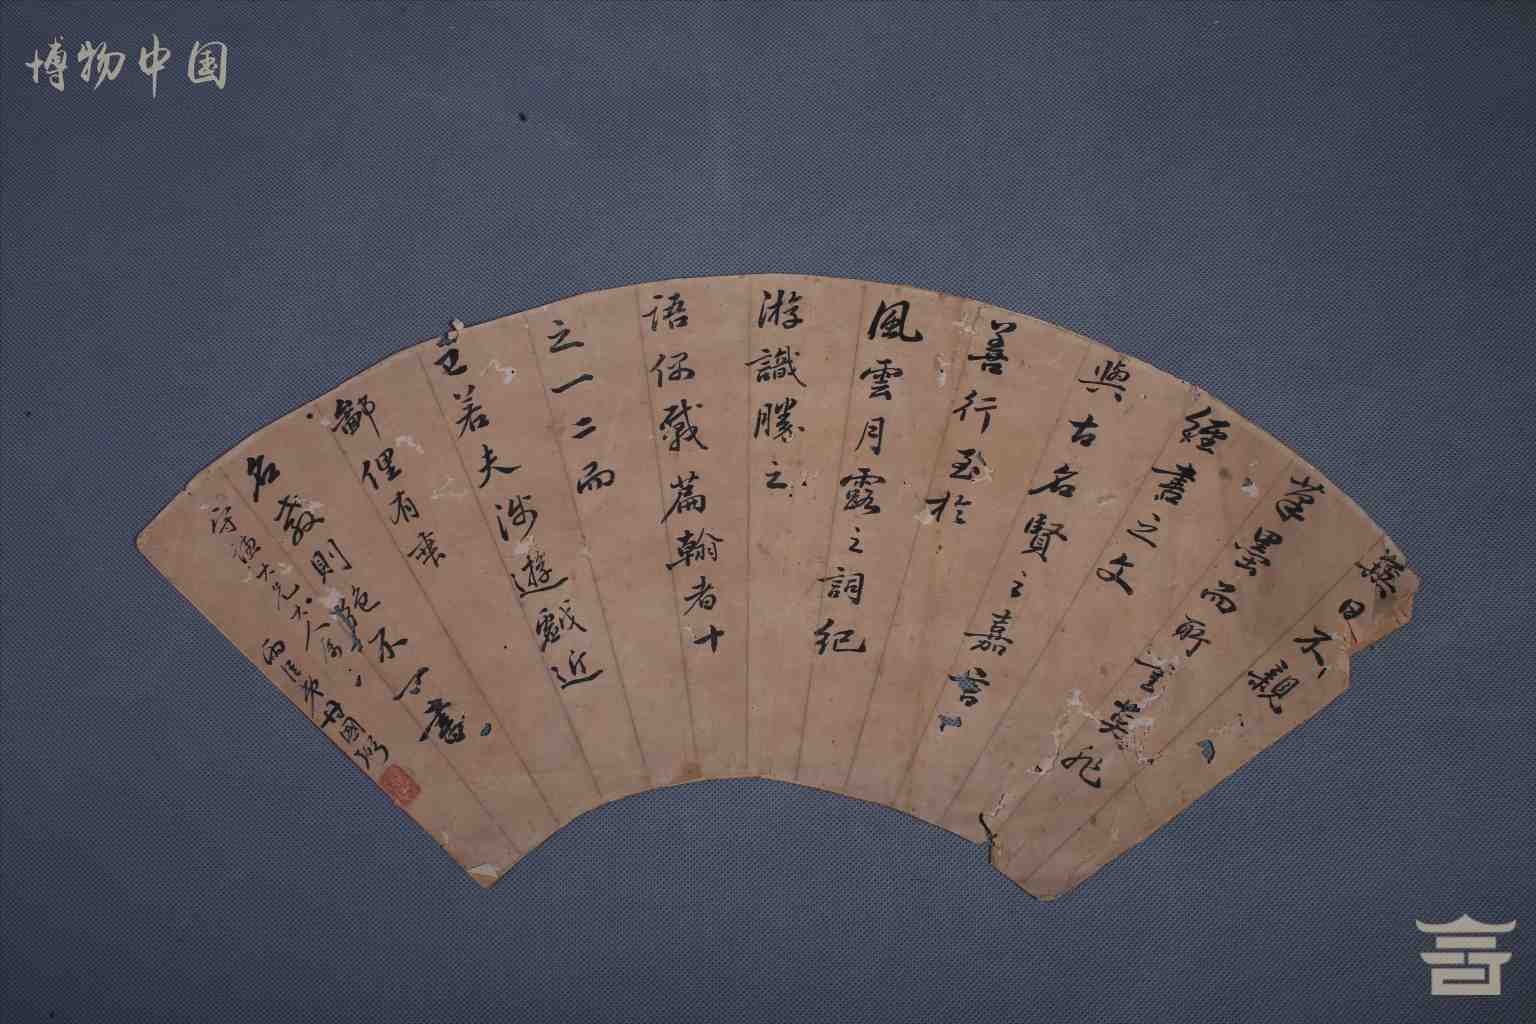 博物中国
無日不親
筆墨而所書莫非
經書之文
與古名賢之嘉言
善行至於
風雲月露之詞紀
游識勝之
語偶戲篇翰者十
之一二而
已若夫涉遊戲近
鄙俚有乖
名教則絕不一書
大兄大人屬
國